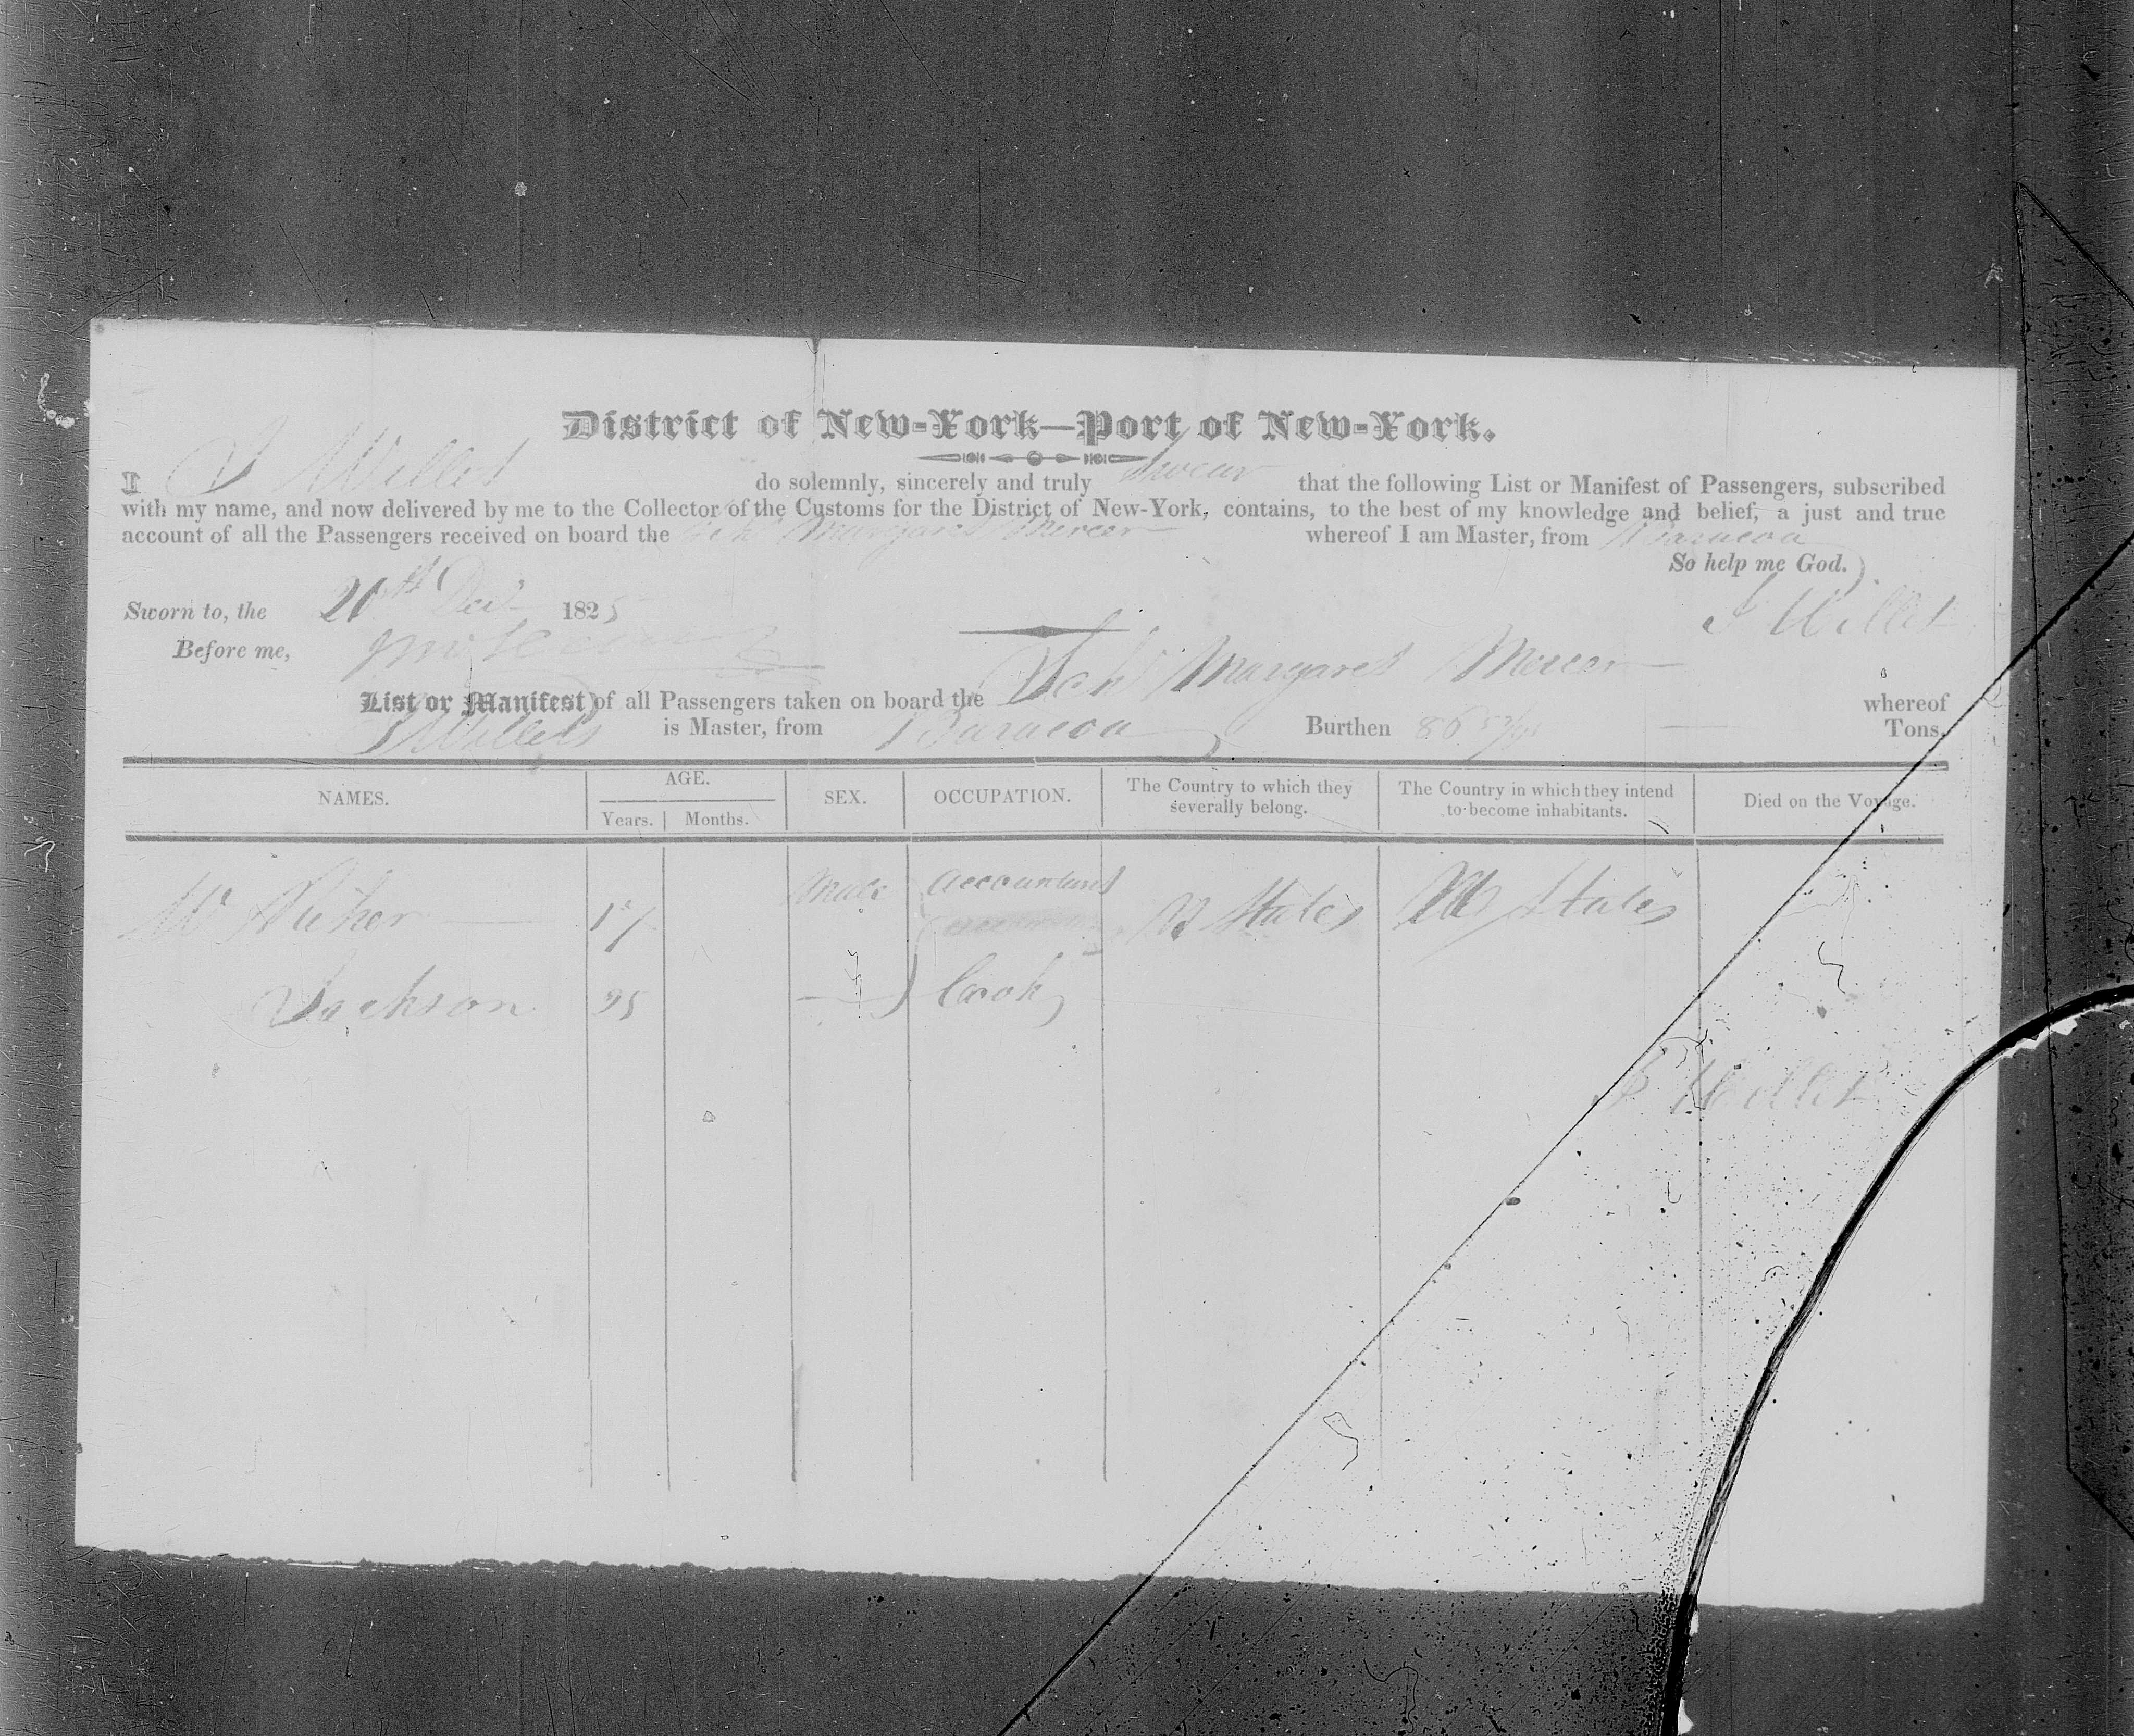 District of New-York—Port of New-York.
I J Willet do solemnly, sincerely and truly swear that the following List or Manifest of Passengers, subscribed
with my name, and now delivered by me to the Collector of the Customs for the District of New-York, contains, to the best of my knowledge and belief, a just and true
account of all the Passengers received on board the Sch Margaret Mercer whereof I am Master, from Baracoa
So help me God.
Sworn to, the 21st Dec 1825 J Willet
Before me,
List or Manifest of all Passengers taken on board the Sch Margaret Mercer whereof
J Willets is Master, from Baracoa Burthen 86 Tons.
NAMES. AGE. SEX. OCCUPATION. The Country to which they severally belong. The Country in which they intend to become inhabitants. Died on the Voyage.
Years. Months.
Mr 17 Male Accountant U States U States
Jackson 25 — Cook
J Willet